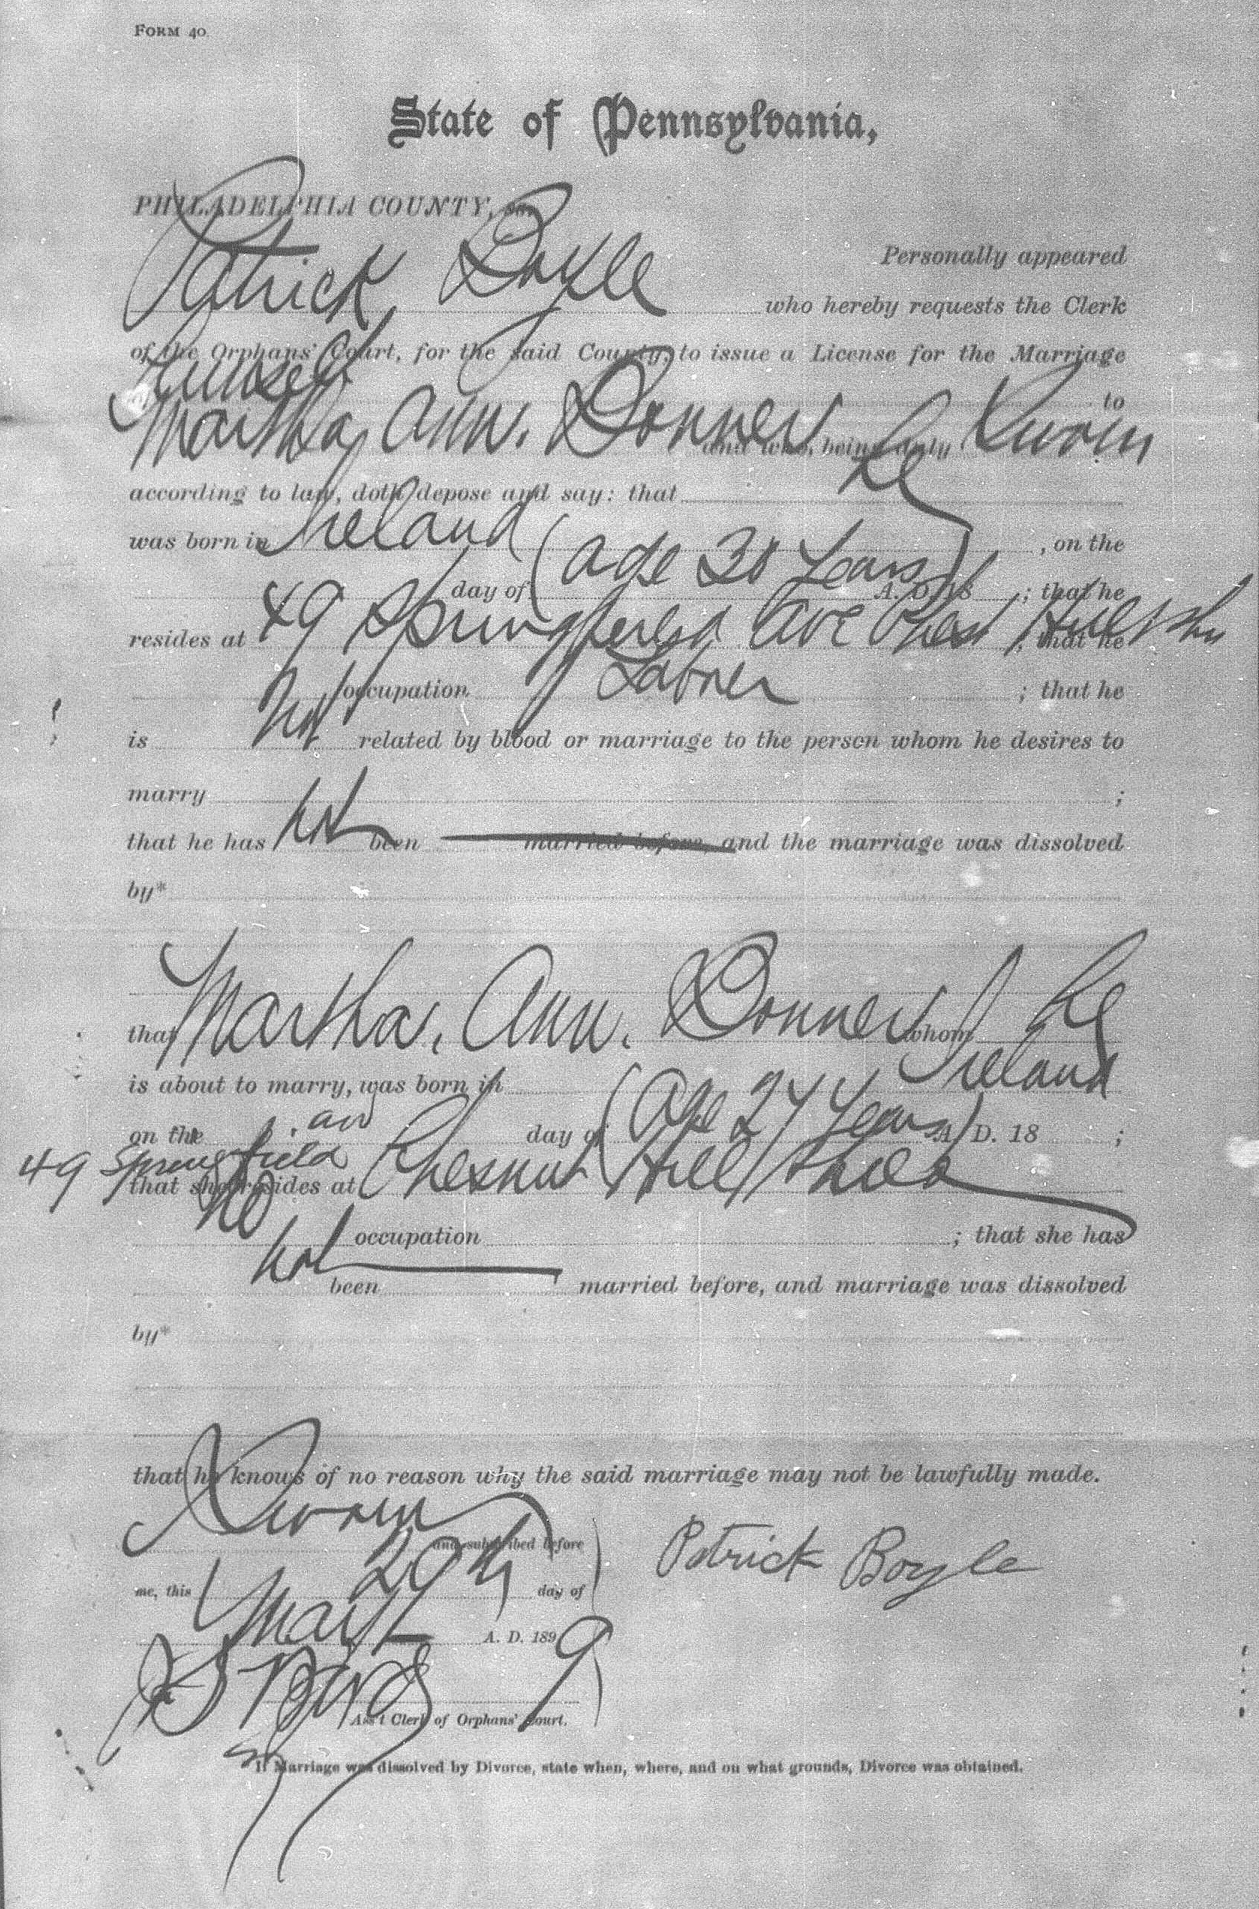 FORM 40.
State of Pennsylvania,
PHILADELPHIA COUNTY, ss.
Personally appeared
Patrick Boyle who hereby requests the Clerk
of the Orphans' Court, for the said County, to issue a License for the Marriage
himself to
Martha Ann. Bonner and who, being duly Sworn
according to law, doth depose and say: that he
was born in Ireland , on the
day of (age 30 years) A. D. 18 ; that he
resides at 49 Springfield ave Chest Hill Phila ; that he
occupation Labrer ; that he
is not related by blood or marriage to the person whom he desires to
marry ;
that he has not been married before, and the marriage was dissolved
by*
that Martha. Ann. Bonner whom he
is about to marry, was born in Ireland
on the day of (age 27 years) A. D. 18 ;
49 Springfield av
that she resides at Chesnut Hill Phila
no occupation ; that she has
not been married before, and marriage was dissolved
by*
that he knows of no reason why the said marriage may not be lawfully made.
Sworn and subscribed before
me, this 29th day of
May A. D. 1899
Patrick Boyle
Ass't Clerk of Orphans' Court.
If Marriage was dissolved by Divorce, state when, where, and on what grounds, Divorce was obtained.